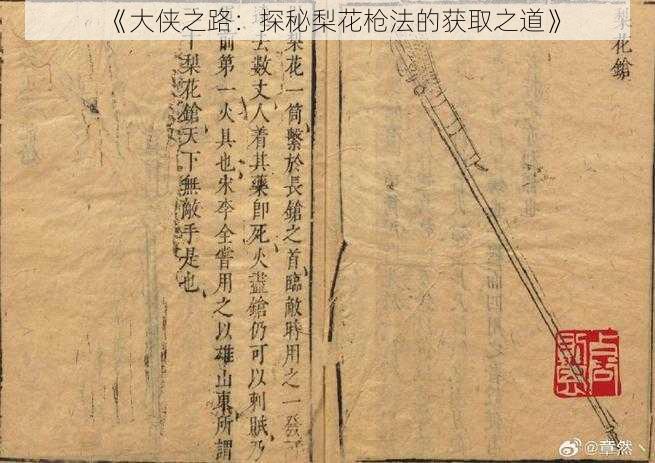 《大侠之路：探秘梨花枪法的获取之道》
梨花鎗
梨花一筒繫於長鎗之首臨敵時用之一發
去數丈人着其藥即死火盡鎗仍可以刺賊乃
前第一火具也宋李全嘗用之以雄山東所謂
十梨花鎗天下無敵手是也
@章然丶